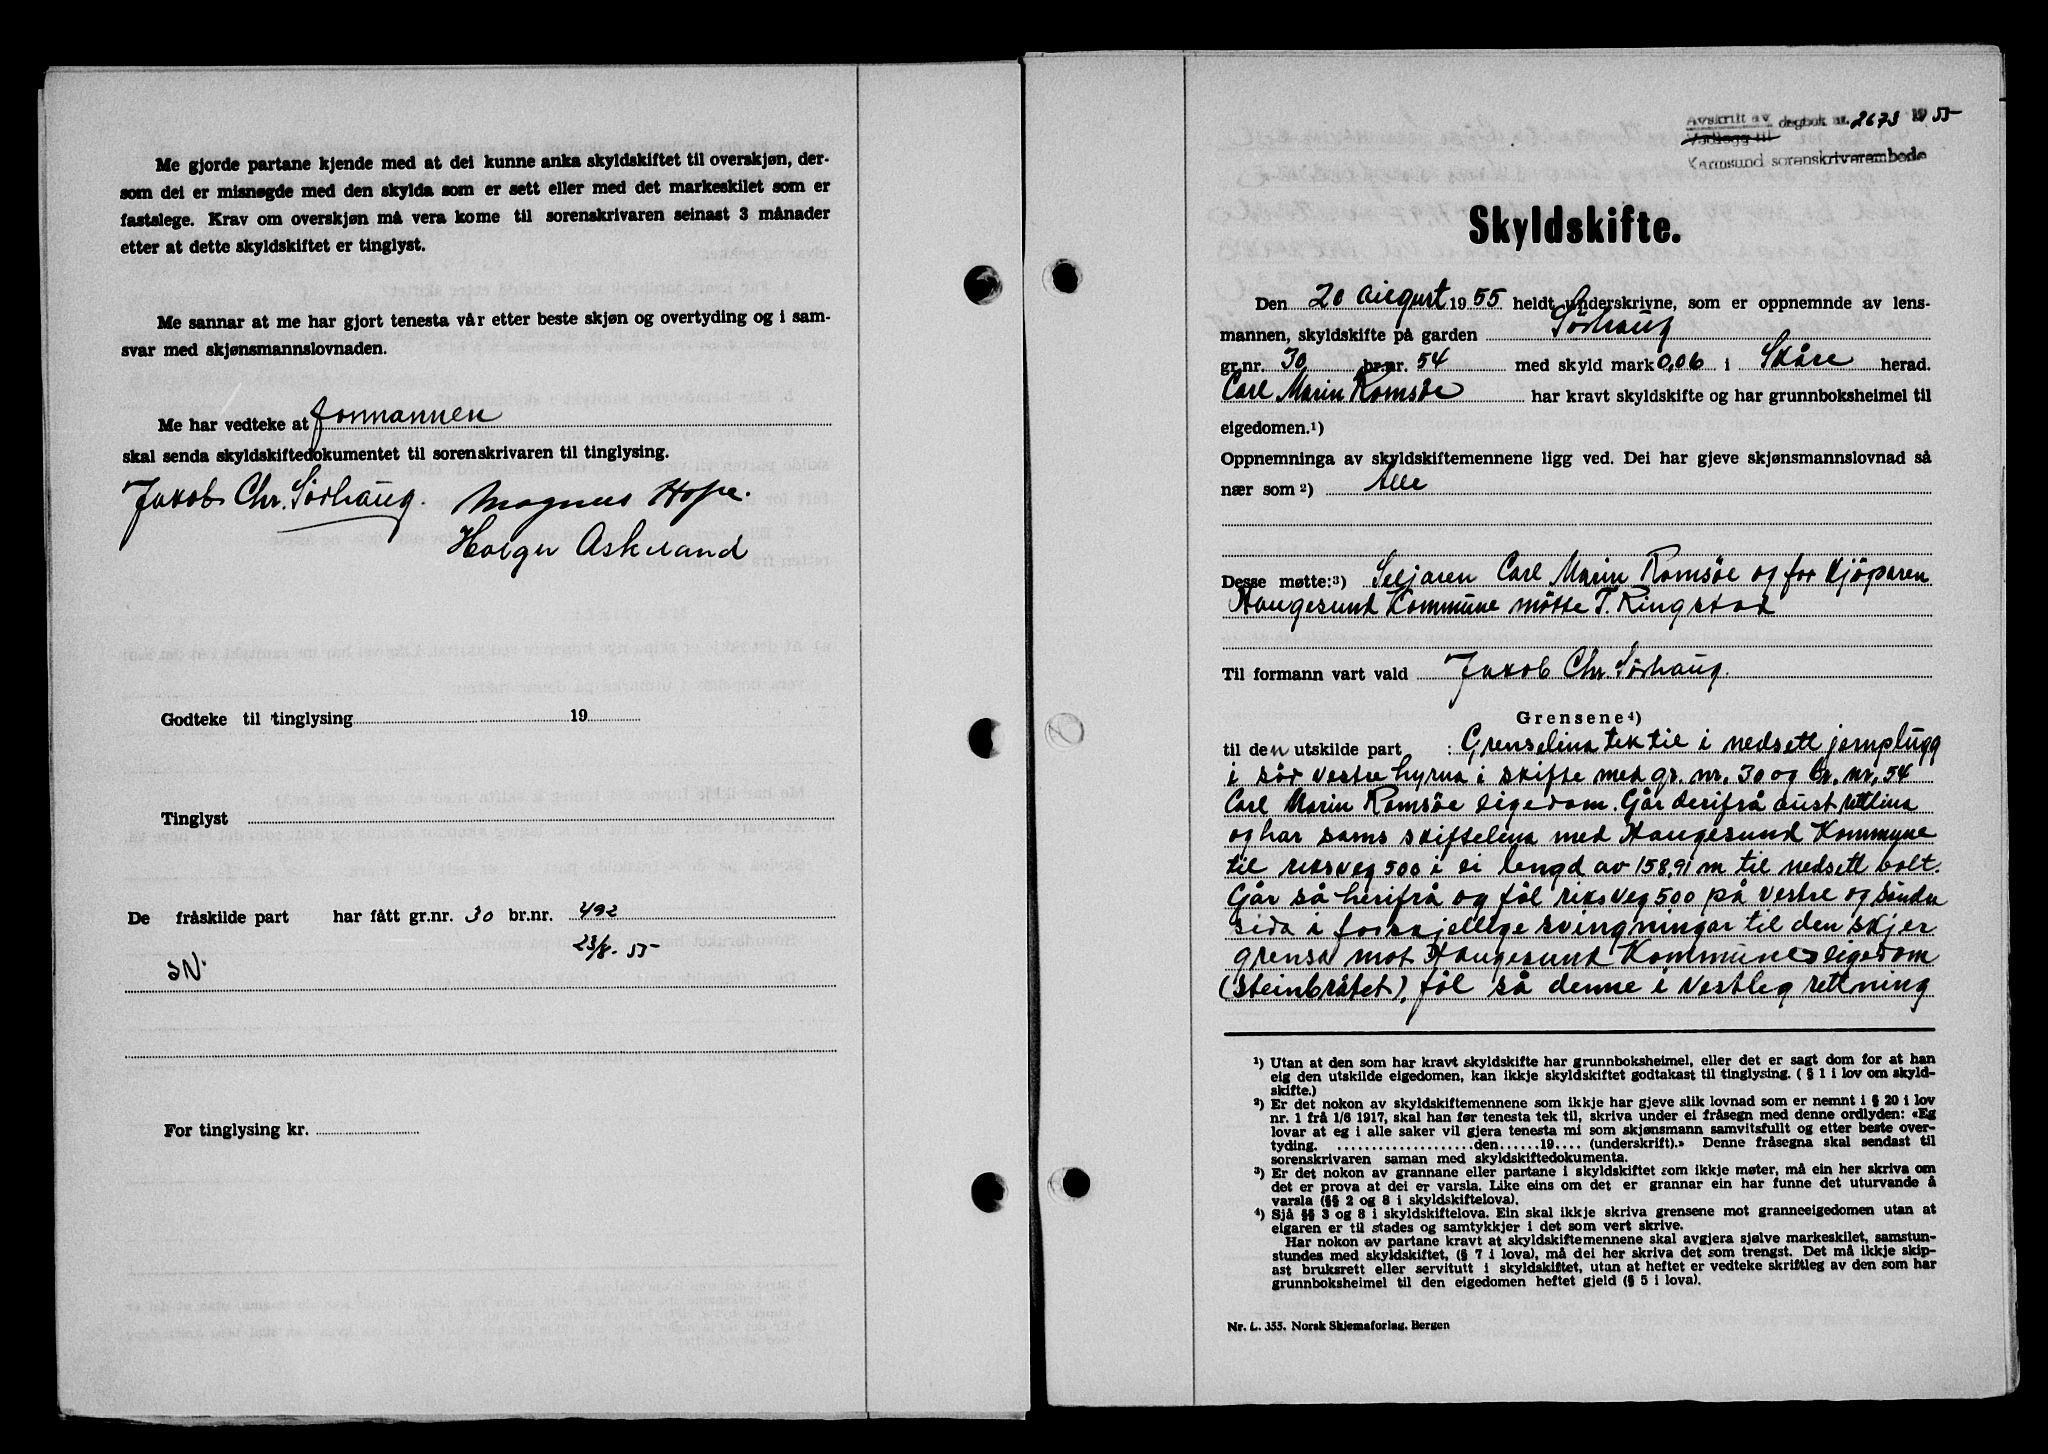 Me gjorde partane kjende med at dei kunne anka skyldskiftet til overskjøn, der-
som dei er misnøgde med den skylda som er sett eller med det markeskilet som er
fastslege. Krav om overskjøn må vera kome til sorenskrivaren seinast 3 månader
etter at dette skyldskiftet er tinglyst.
Me sannar at me har gjort tenesta vår etter beste skjøn og overtyding og i sam-
svar med skjønsmannslovnaden.
Me har vedteke at formannen
skal senda skyldskiftedokumentet til sorenskrivaren til tinglysing.
Jakob Chr. Sørhaug. Magnus Hope.
Holger Askeland
Godteke til tinglysing 19
Tinglyst
De fråskilde part har fått gr.nr. 30 br.nr. 492
23/8. 55
For tinglysing kr.
Avskrift av dagbok nr. 2673 1955
Vedlegg til
Karmsund sorenskriverembede
Skyldskifte.
Den 20 august 1955 heldt underskrivne, som er oppnemnde av lens-
mannen, skyldskifte på garden Sørhaug
gr.nr. 30 br.nr. 54 med skyld mark 0,06 i Skåre herad.
Carl Marin Romsøe har kravt skyldskifte og har grunnboksheimel til
eigedomen.1)
Oppnemninga av skyldskiftemennene ligg ved. Dei har gjeve skjønsmannslovnad så
nær som 2) Alle
Desse møtte:3) Seljaren Carl Marin Romsøe og for kjöparen
Haugesund Kommune møtte T. Ringstad
Til formann vart vald Jakob Chr Sørhaug.
Grensene 4)
til den utskilde part : Grenselina tek til i nedsett jernplugg
i sör vestre hyrna i skifte med gr. nr. 30 og br. nr. 54
Carl Marin Romsøe eigedom. Går derifrå aust rettlina
og har sams skiftelina med Haugesund Kommune
til riksveg 500 i ei lengd av 158,91 m til nedsett bolt.
Går så herifrå og föl riksveg 500 på vestre og söndre
sida i forskjellige svingningar til den skjer
grensa mot Haugesund Kommunes eigedom
(steinbråtet), föl så denne i vestleg rettning
1) Utan at den som har kravt skyldskifte har grunnboksheimel, eller det er sagt dom for at han
eig den utskilde eigedomen, kan ikkje skyldskiftet godtakast til tinglysing. (§ 1 i lov om skyld-
skifte.)
2) Er det nokon av skyldskiftemennene som ikkje har gjeve slik lovnad som er nemnt i § 20 i lov
nr. 1 frå 1/6 1917, skal han før tenesta tek til, skriva under ei fråsegn med denne ordlyden: «Eg
lovar at eg i alle saker vil gjera tenesta mi som skjønsmann samvitsfullt og etter beste over-
tyding. ..................... den ...... 19.... (underskrift).» Denne fråsegna skal sendast til
sorenskrivaren saman med skyldskiftedokumenta.
3) Er det nokon av grannane eller partane i skyldskiftet som ikkje møter, må ein her skriva om
det er prova at dei er varsla. Like eins om det er grannar ein har funne det uturvande å
varsla (§§ 2 og 8 i skyldskiftelova).
4) Sjå §§ 3 og 8 i skyldskiftelova. Ein skal ikkje skriva grensene mot granneeigedomen utan at
eigaren er til stades og samtykkjer i det som vert skrive.
Har nokon av partane kravt at skyldskiftemennene skal avgjera sjølve markeskilet, samstun-
stundes med skyldskiftet, (§ 7 i lova), må dei her skriva det som trengst. Det må ikkje skip-
ast bruksrett eller servitutt i skyldskiftet, utan at heftet er vedteke skriftleg av den som har
grunnboksheimel til den eigedomen heftet gjeld (§ 5 i lova).
Nr. L. 355. Norsk Skjemaforlag, Bergen